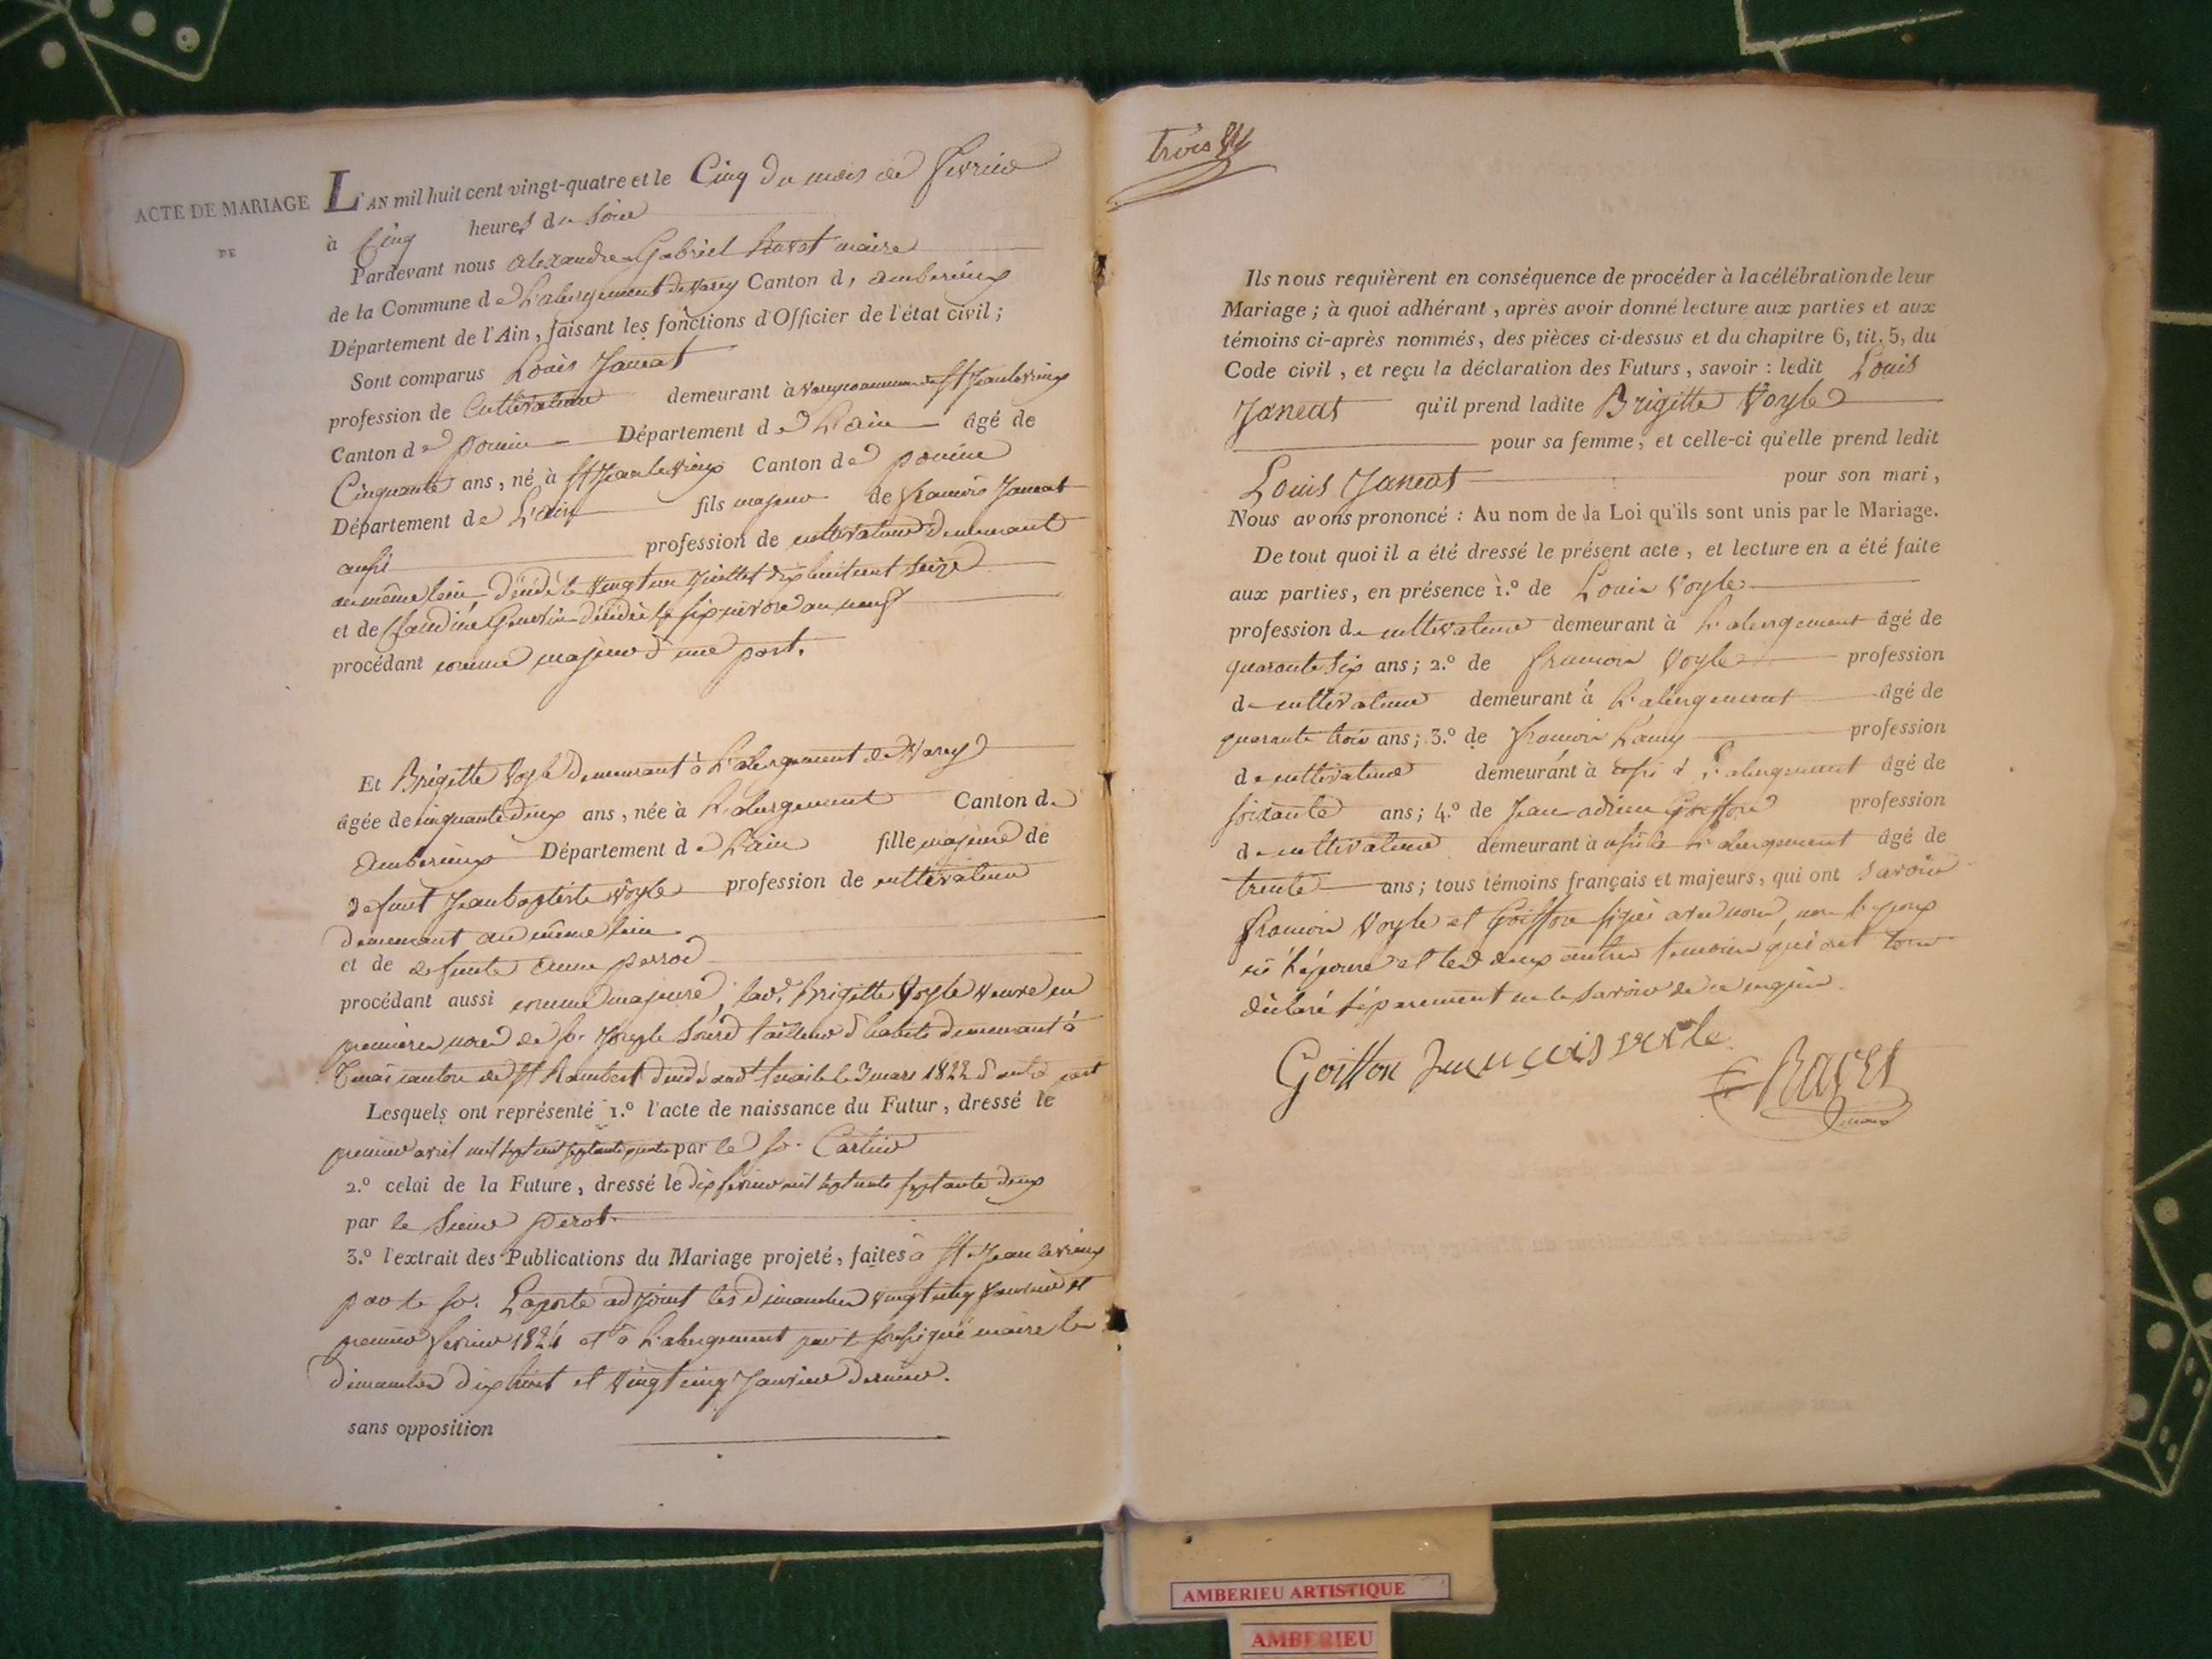 ACTE DE MARIAGE
DE
L'AN mil huit cent vingt-quatre et le Cinq du mois de fevrier
à Cinq heures du soir
Pardevant nous alexandre Gabriel Ravet maire
de la Commune de L'abergement de Varey Canton d, amberieux
Département de l'Ain, faisant les fonctions d'Officier de l'état civil ;
Sont comparus Louis Janeat
profession de Cultivateur demeurant à varey commune de St Jean le vieux
Canton de poncin Département de L'ain âgé de
Cinquante ans, né à St Jean le vieux Canton de poncin
Département de L'ain fils majeur de francois Janeat
aussi profession de cultivateur demeurant
au même lieu décédé le vingt un Juillet dix huit cent seize
et de Claudine décédée le six nivose an neuf
procédant comme majeur d'une part.
Et Brigitte Voyle demeurant à L'abergement de Varey
âgée de cinquante deux ans, née à L'abergement Canton de
Amberieux Département de L'ain fille majeure de
defunt Jean baptiste Voyle profession de cultivateur
demeurant au même lieu
et de defunte anne perrod
procédant aussi comme majeure, lad. Brigitte Voyle veuve en
premieres noces de sr. Joseph Sourd tailleur d'habits demeurant à
canton de St Rambert décédé aud. le 3 mars 1822 d'autre part
Lesquels ont représenté 1.º l'acte de naissance du Futur, dressé le
premier avril mil sept cent septante quatre par le sr. Cartier
2.º celui de la Future, dressé le dix fevrier mil sept cents septante deux
par le sieur perot
3.º l'extrait des Publications du Mariage projeté, faites à St Jean le vieux
par le sr. Laporte adjoint les dimanches vingt cinq Janvier et
premier fevrier 1824 et à L'abergement par le soussigné maire les
dimanches dix huit et vingt cinq Janvier dernier.
sans opposition
trois
Ils nous requièrent en conséquence de procéder à la célébration de leur
Mariage ; à quoi adhérant, après avoir donné lecture aux parties et aux
témoins ci-après nommés, des pièces ci-dessus et du chapitre 6, tit. 5, du
Code civil, et reçu la déclaration des Futurs, savoir : ledit Louis
Janeat qu'il prend ladite Brigitte Voyle
pour sa femme, et celle-ci qu'elle prend ledit
Louis Janeat pour son mari,
Nous avons prononcé : Au nom de la Loi qu'ils sont unis par le Mariage.
De tout quoi il a été dressé le présent acte, et lecture en a été faite
aux parties, en présence 1.º de Louis Voyle
profession de cultivateur demeurant à L'abergement âgé de
quarante six ans ; 2.º de francois Voyle profession
de cultivateur demeurant à L'abergement âgé de
quarante trois ans ; 3.º de francois profession
de cultivateur demeurant à L'abergement âgé de
soixante ans ; 4.º de Jean Goiffon profession
de cultivateur demeurant à L'abergement âgé de
trente ans ; tous témoins français et majeurs, qui ont savoir
francois Voyle et Goiffon signé avec nous, non l'epoux
ni l'épouse et les deux autres temoins qui ont tous
déclaré séparement ne le savoir de ce enquis.
Goiffon francois voyle
Ravet
maire
AMBERIEU ARTISTIQUE
AMBERIEU